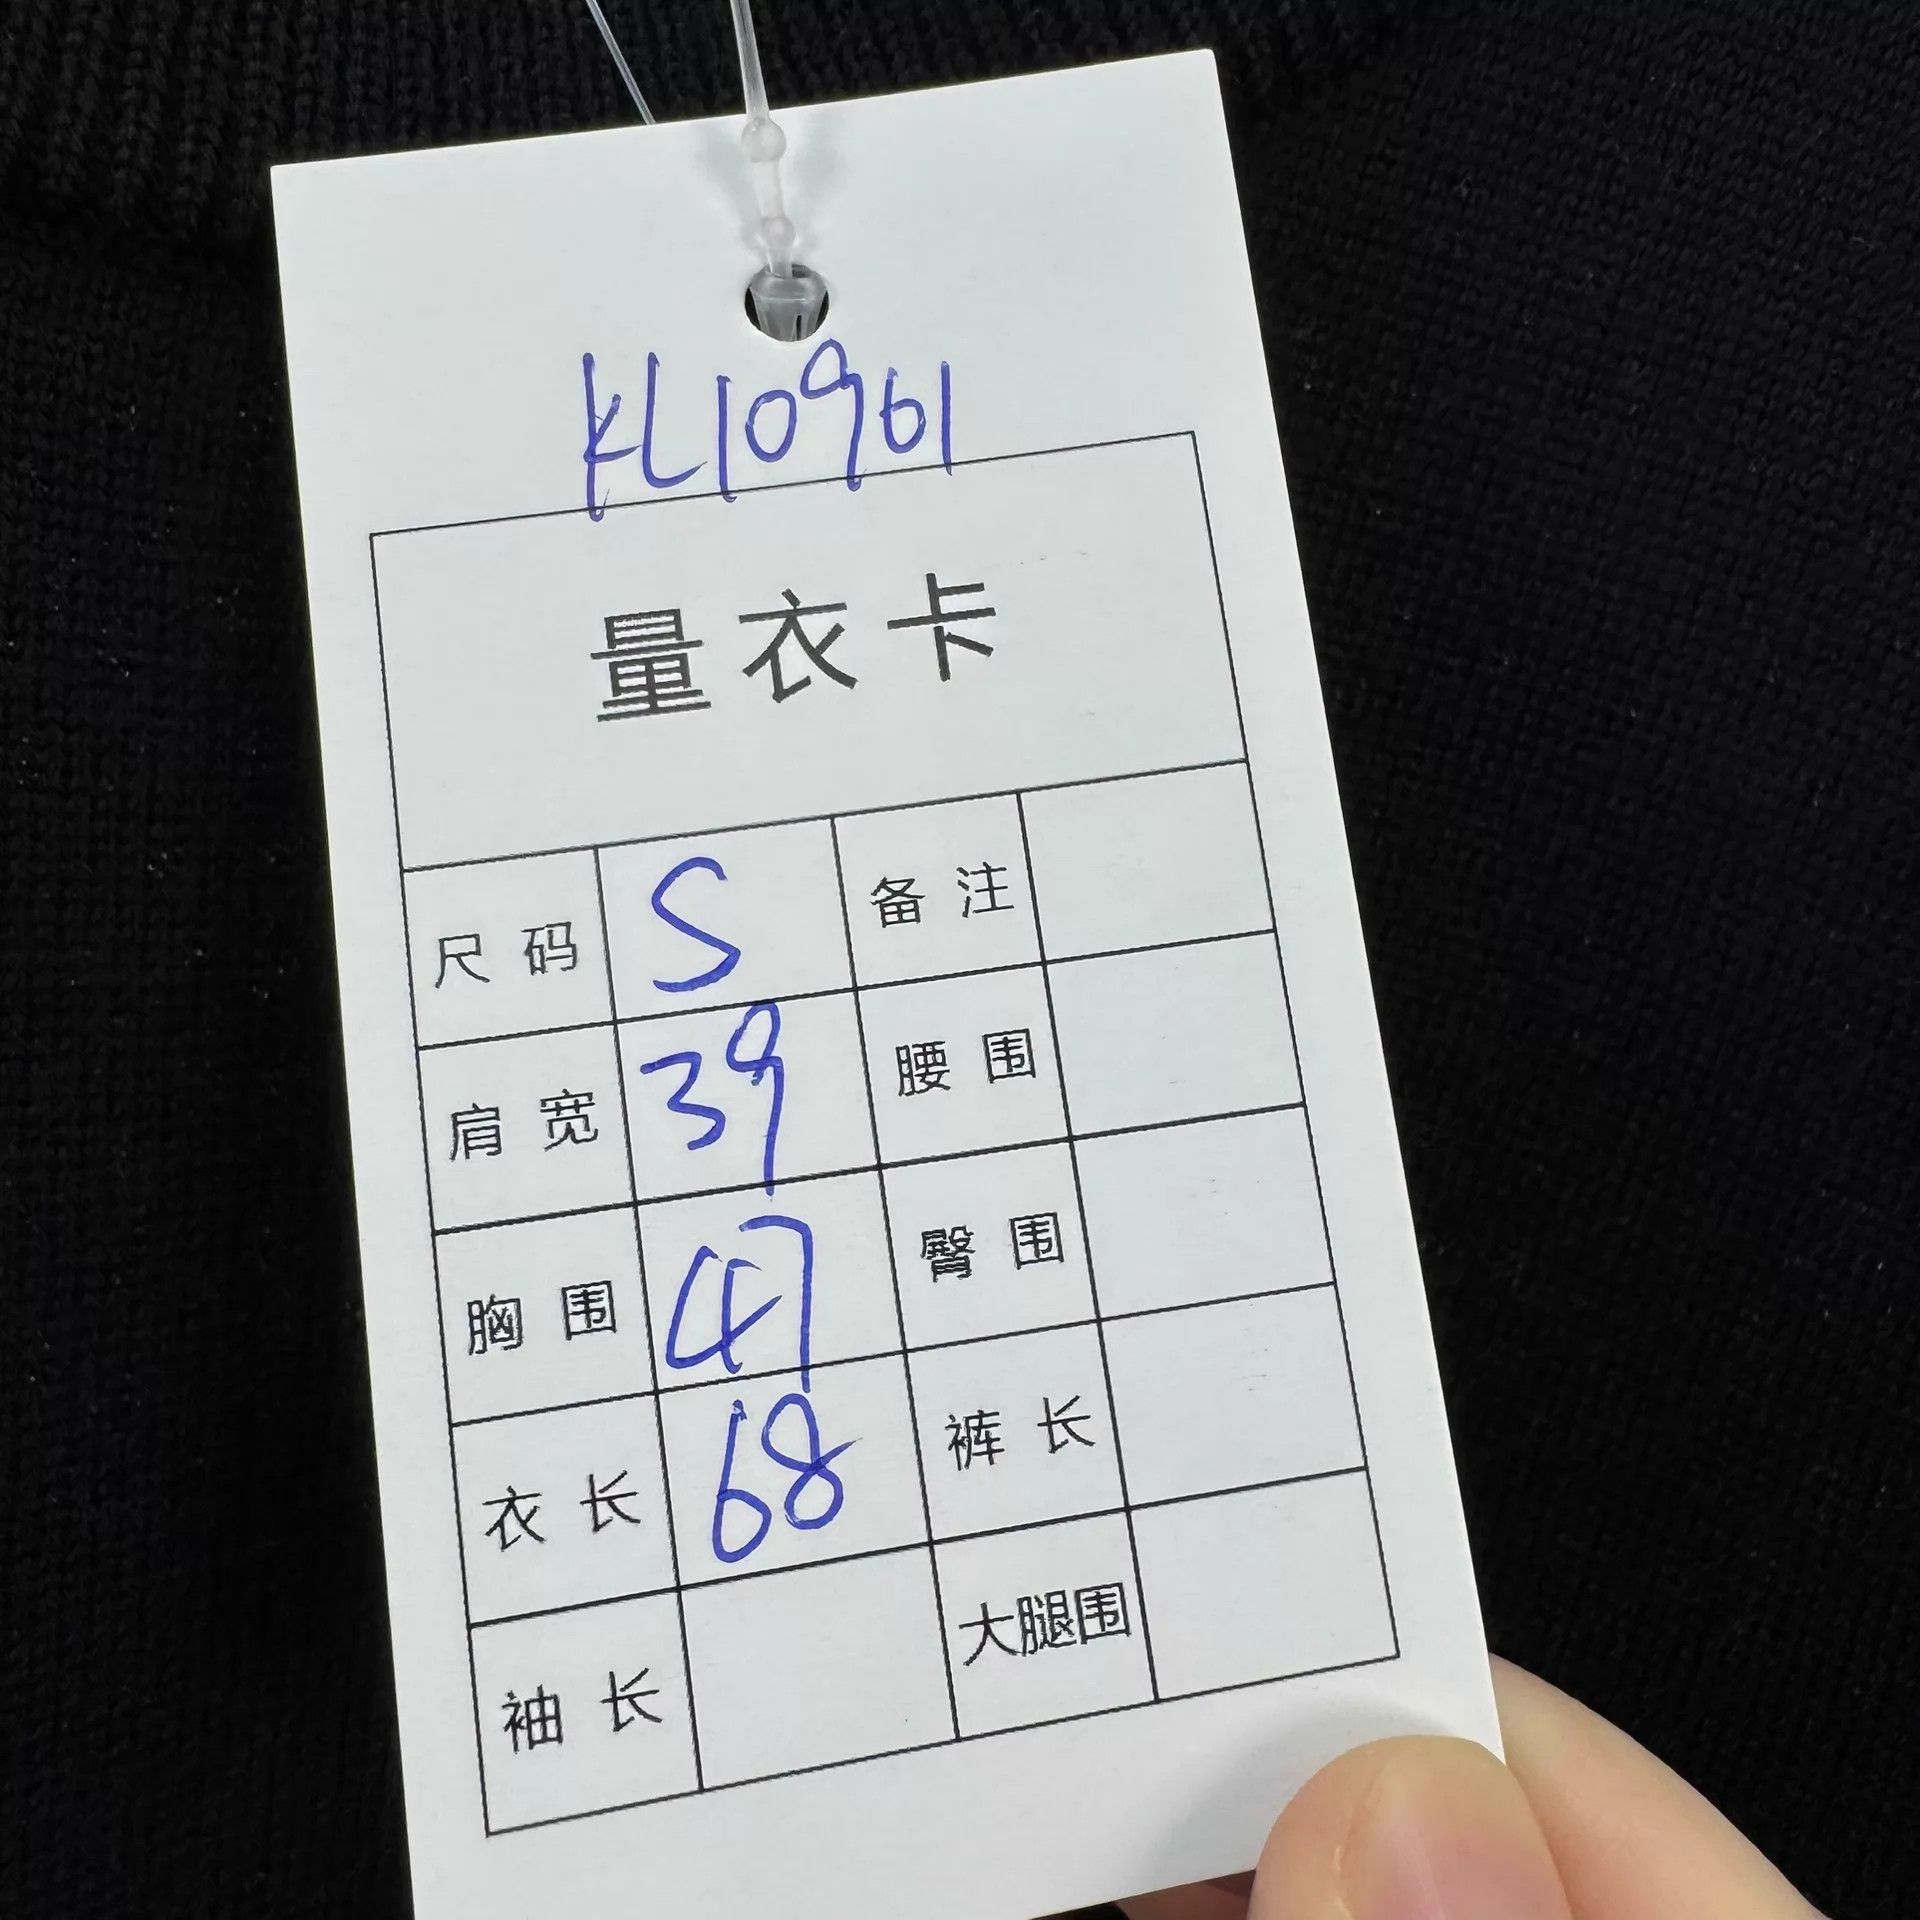 KL10961
量衣卡
尺码 S 备注
肩宽 39 腰围
胸围 47 臀围
衣长 68 裤长
袖长 大腿围